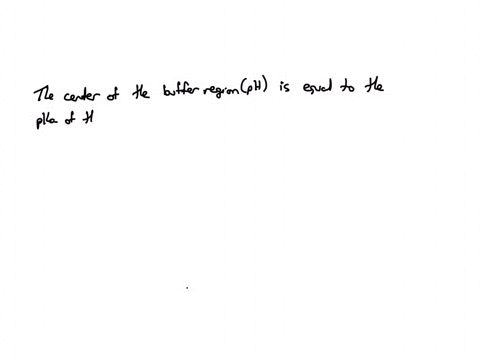 The center of the buffer region (pH) is equal to the
pKa of th